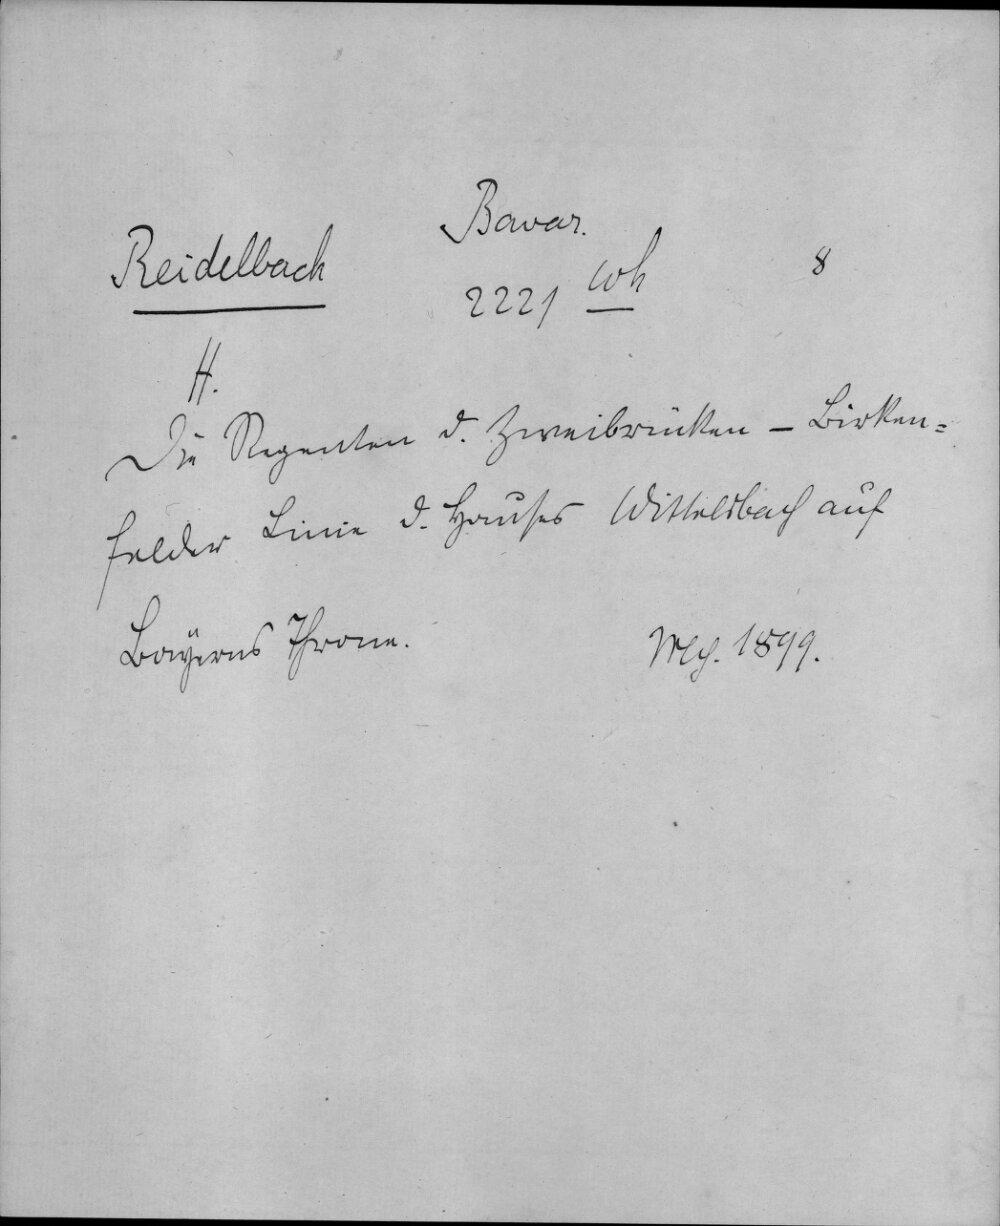 Bavar.
Reidelbach 2221 wh 8
H.
Die Regenten d. Zweibrücken - Birken=
felder Linie d. Hauses Wittelsbach auf
Bayerns Throne. Mch. 1899.